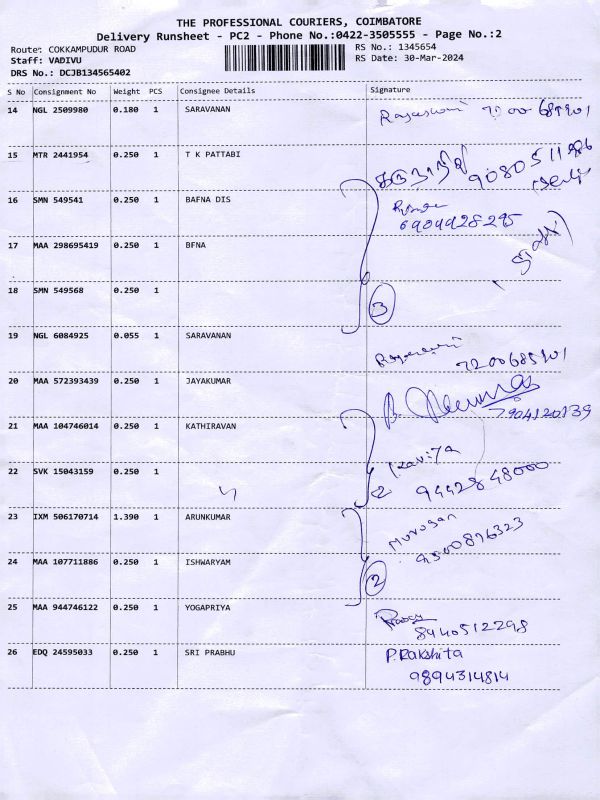 THE PROFESSIONAL COURIERS, COIMBATORE
Delivery Runsheet - PC2 - Phone No.:0422-3505555 - Page No.:2
Route: COKKAMPUDUR ROAD RS No.: 1345654
Staff: VADIVU RS Date: 30-Mar-2024
DRS No.: DCJB134565402
S No Consignment No Weight PCS Consignee Details Signature
14 NGL 2509980 0.180 1 SARAVANAN
15 MTR 2441954 0.250 1 T K PATTABI
16 SMN 549541 0.250 1 BAFNA DIS
17 MAA 298695419 0.250 1 BFNA
18 SMN 549568 0.250 1 3
19 NGL 6084925 0.055 1 SARAVANAN 7200685901
20 MAA 572393439 0.250 1 JAYAKUMAR 7904120139
21 MAA 104746014 0.250 1 KATHIRAVAN Kavitha
22 SVK 15043159 0.250 1 2 9442848000
23 IXM 506170714 1.390 1 ARUNKUMAR Murugan
24 MAA 107711886 0.250 1 ISHWARYAM 2 9500876323
25 MAA 944746122 0.250 1 YOGAPRIYA 8940512298
26 EDQ 24595033 0.250 1 SRI PRABHU P.Rakshita
9894314814